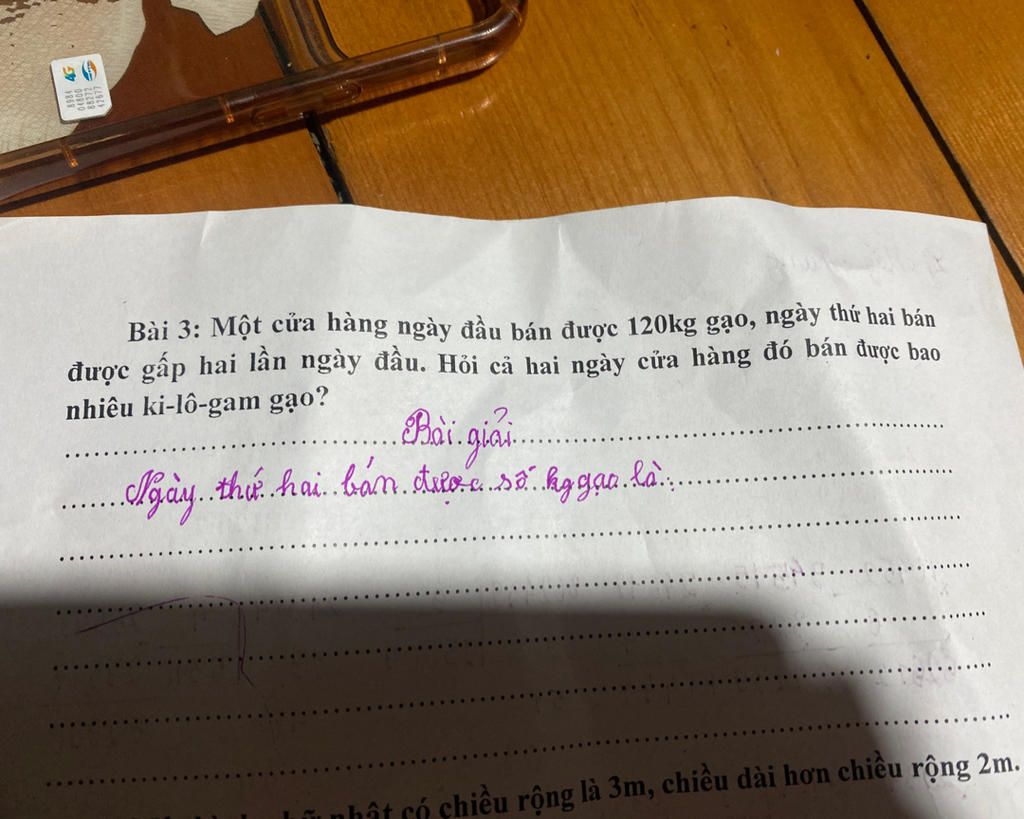 4G
8984
04800
88272
42677
Bài 3: Một cửa hàng ngày đầu bán được 120kg gạo, ngày thứ hai bán
được gấp hai lần ngày đầu. Hỏi cả hai ngày cửa hàng đó bán được bao
nhiêu ki-lô-gam gạo?
Bài giải
Ngày thứ hai bán được số kg gạo là:
nhật có chiều rộng là 3m, chiều dài hơn chiều rộng 2m.